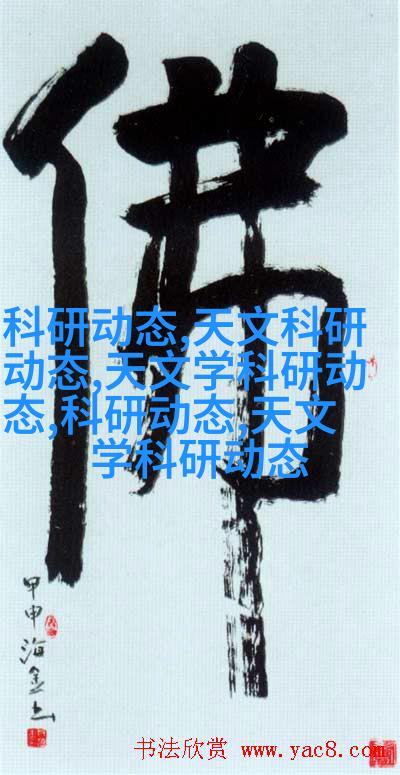 佛
科研动态,天文科研
动态,天文学科研动
态,科研动态,天文
学科研动态
甲申
海金书
书法欣赏 www.yac8.com